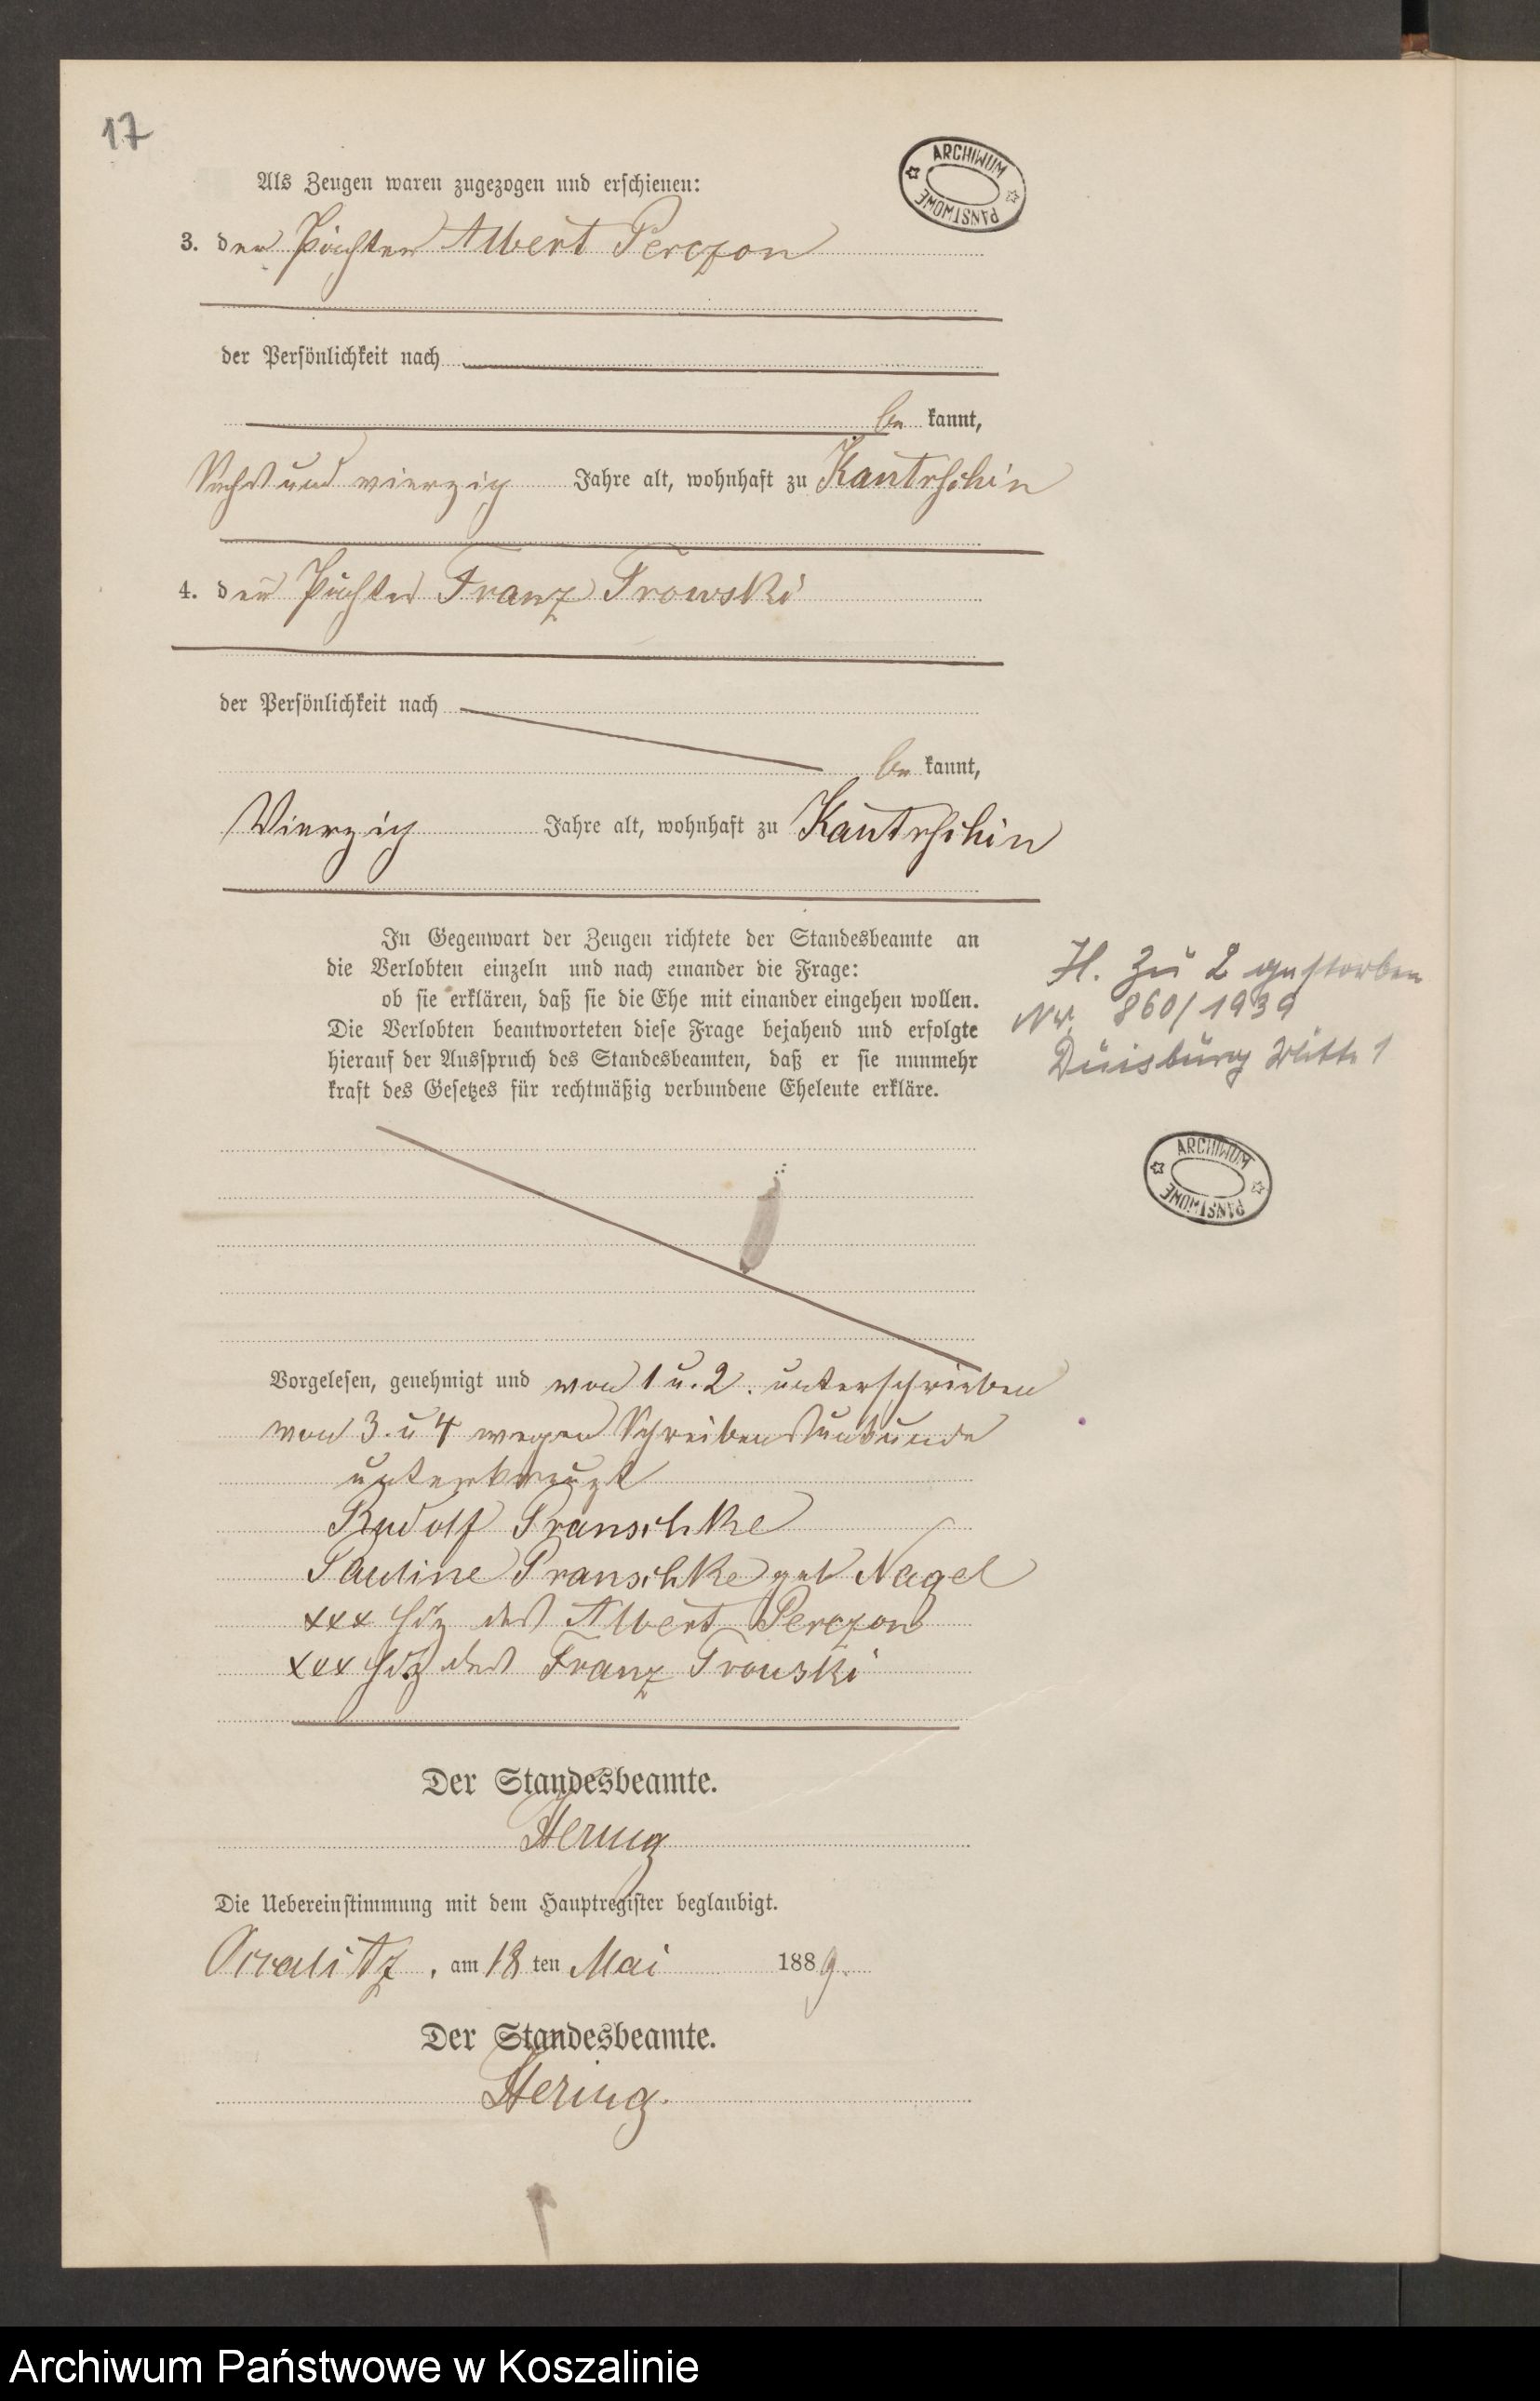 17
ARCHIWUM PAŃSTWOWE
Als Zeugen waren zugezogen und erschienen:
3. der Pächter Albert Perczon
der Persönlichkeit nach
be kannt,
Sechs und vierzig Jahre alt, wohnhaft zu Kantrschin
4. der Pächter Franz Trowski
der Persönlichkeit nach
be kannt,
Vierzig Jahre alt, wohnhaft zu Kantrschin
In Gegenwart der Zeugen richtete der Standesbeamte an
die Verlobten einzeln und nach einander die Frage:
ob sie erklären, daß sie die Ehe mit einander eingehen wollen.
Die Verlobten beantworteten diese Frage bejahend und erfolgte
hierauf der Ausspruch des Standesbeamten, daß er sie nunmehr
kraft des Gesetzes für rechtmäßig verbundene Eheleute erkläre.
H. zu 2 gestorben
Nr. 860/1939
Duisburg Mitte 1
ARCHIWUM PAŃSTWOWE
Vorgelesen, genehmigt und von 1 u. 2. unterschrieben
von 3. u 4 wegen Schreibensunkunde
unterkreuzt
Rudolf Pranschke
Pauline Pranschke geb Nagel
xxx Hdz des Albert Perczon
xxx Hdz des Franz Trowski
Der Standesbeamte.
Hering
Die Uebereinstimmung mit dem Hauptregister beglaubigt.
am 18 ten Mai 1889.
Der Standesbeamte.
Hering.
Archiwum Państwowe w Koszalinie